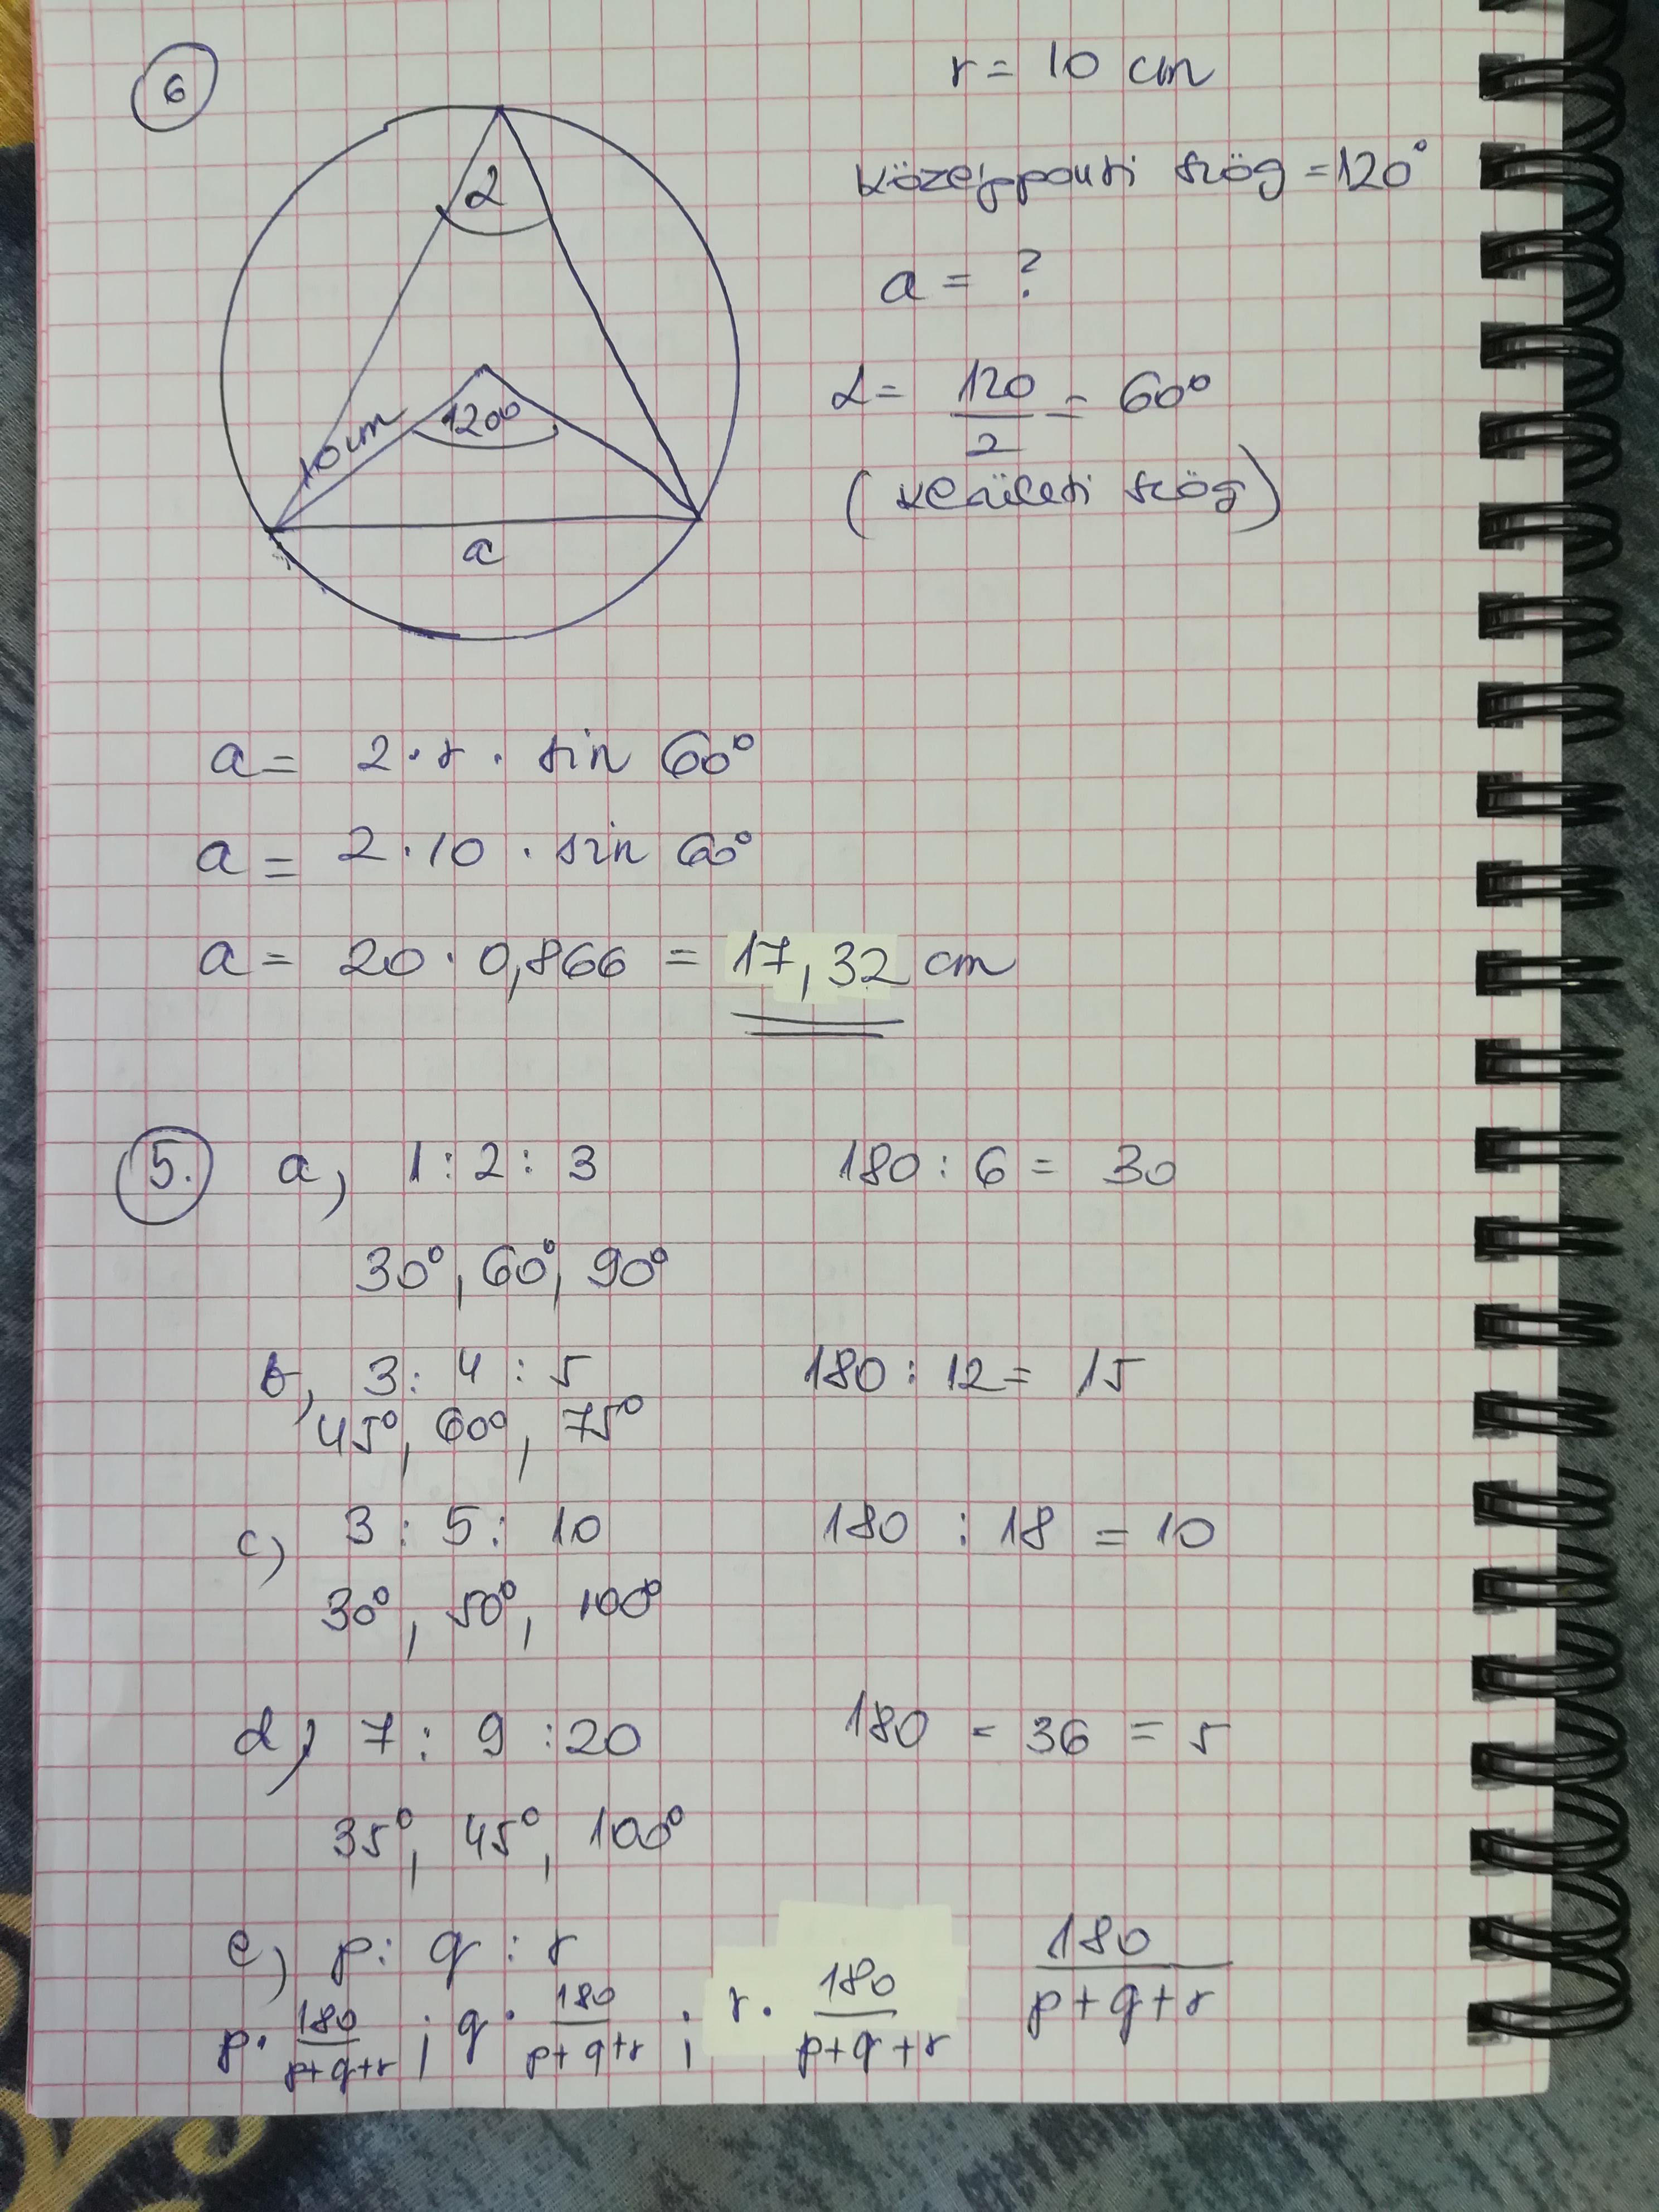 6
r = 10 cm
középponti szög = 120°
a = ?
α = 120/2 = 60°
(kerületi szög)
α
10 cm
120°
a
a = 2 · r · sin 60°
a = 2 · 10 · sin 60°
a = 20 · 0,866 = 17,32 cm
5. a, 1 : 2 : 3 180 : 6 = 30
30°, 60°, 90°
b, 3 : 4 : 5 180 : 12 = 15
45°, 60°, 75°
c) 3 : 5 : 10 180 : 18 = 10
30°, 50°, 100°
d, 7 : 9 : 20 180 = 36 = 5
35°, 45°, 100°
e) p : q : r 180/(p+q+r)
p · 180/(p+q+r) ; q · 180/(p+q+r) ; r · 180/(p+q+r)